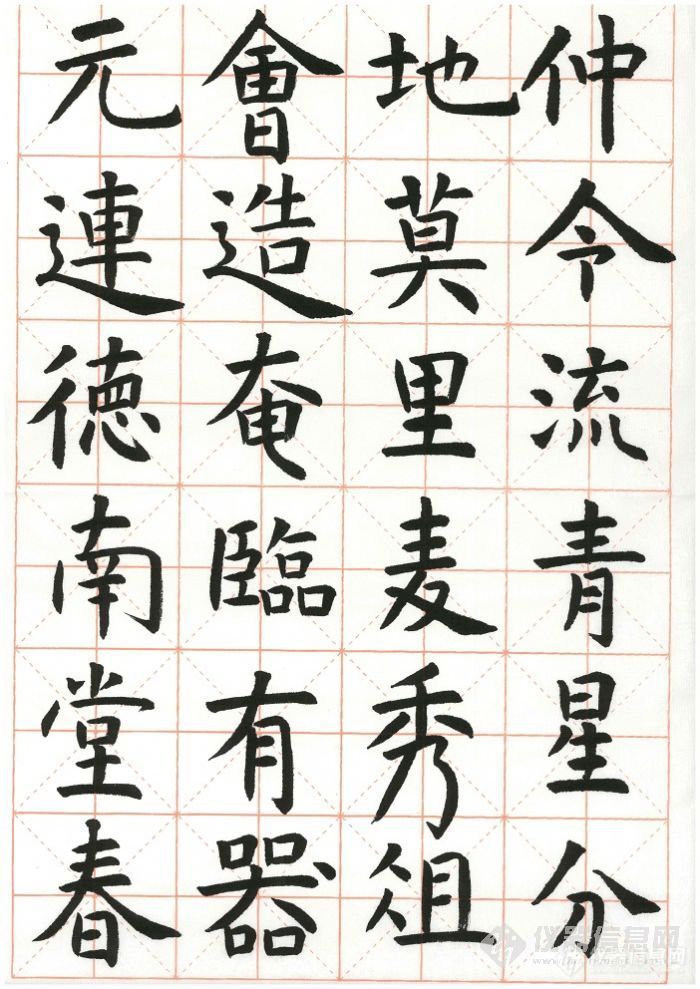 仲令流青星分
地莫里麦秀俎
會造奄臨有器
元連徳南堂春
仪器信息网